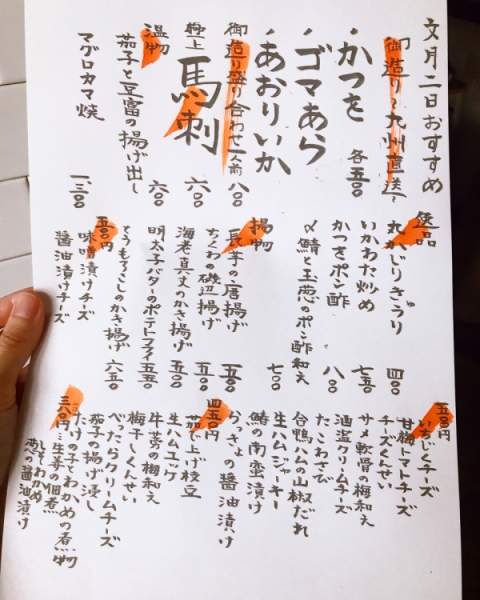 文月二日おすすめ
御造り〜九州直送〜
・かつを
・ゴマあら
・あおりいか
各五〇〇
御造り盛り合わせ一人前 一八〇〇
極上 馬刺 一六〇〇
温物
茄子と豆富の揚げ出し 六〇〇
マグロカマ焼 一、三〇〇
逸品
丸かじりきゅうり 四〇〇
いかわた炒め 七五〇
かつをポン酢 八〇〇
〆鯖と玉葱のポン酢和え 七〇〇
揚物
長芋の唐揚げ 五五〇
ちくわの磯辺揚げ 五〇〇
海老真丈のかき揚げ 五五〇
明太子バターのポテトフライ 五五〇
とうもろこしのかき揚げ 六五〇
五〇〇円
味噌漬けチーズ
醤油漬けチーズ
五〇〇円
いちじくチーズ
甘梅トマトチーズ
チーズくんせい
サメ軟骨の梅和え
酒盗クリームチーズ
たこわさび
台鴨ハムの山椒だれ
生ハムジャーキー
鯵の南蛮漬け
らっきょの醤油漬け
四五〇円
茹で上げ枝豆
生ハムユッケ
牛蒡の梅和え
梅干しくんせい
べったらクリームチーズ
茄子の揚げ浸し
たけの子とわかめの煮物
三八〇円…生姜の佃煮
しそわかめ
あべの醤油漬け